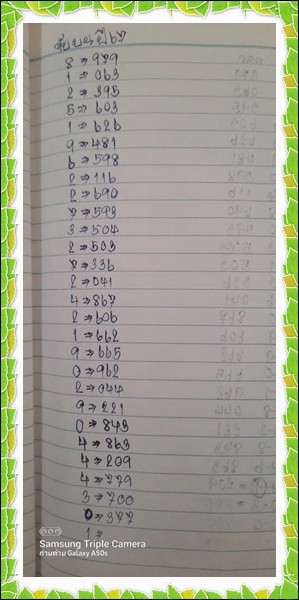 สิบบนปี67
8⇒979
1⇒063
2⇒395
5⇒603
1⇒626
9⇒481
6⇒598
2⇒116
2⇒690
7⇒593
3⇒504
2⇒503
7⇒336
2⇒041
4⇒867
2⇒606
1⇒662
9⇒665
0⇒962
2⇒044
9⇒221
0⇒843
4⇒863
4⇒209
4⇒779
3⇒700
0⇒377
1⇒
Samsung Triple Camera
ถ่ายด้วย Galaxy A50s